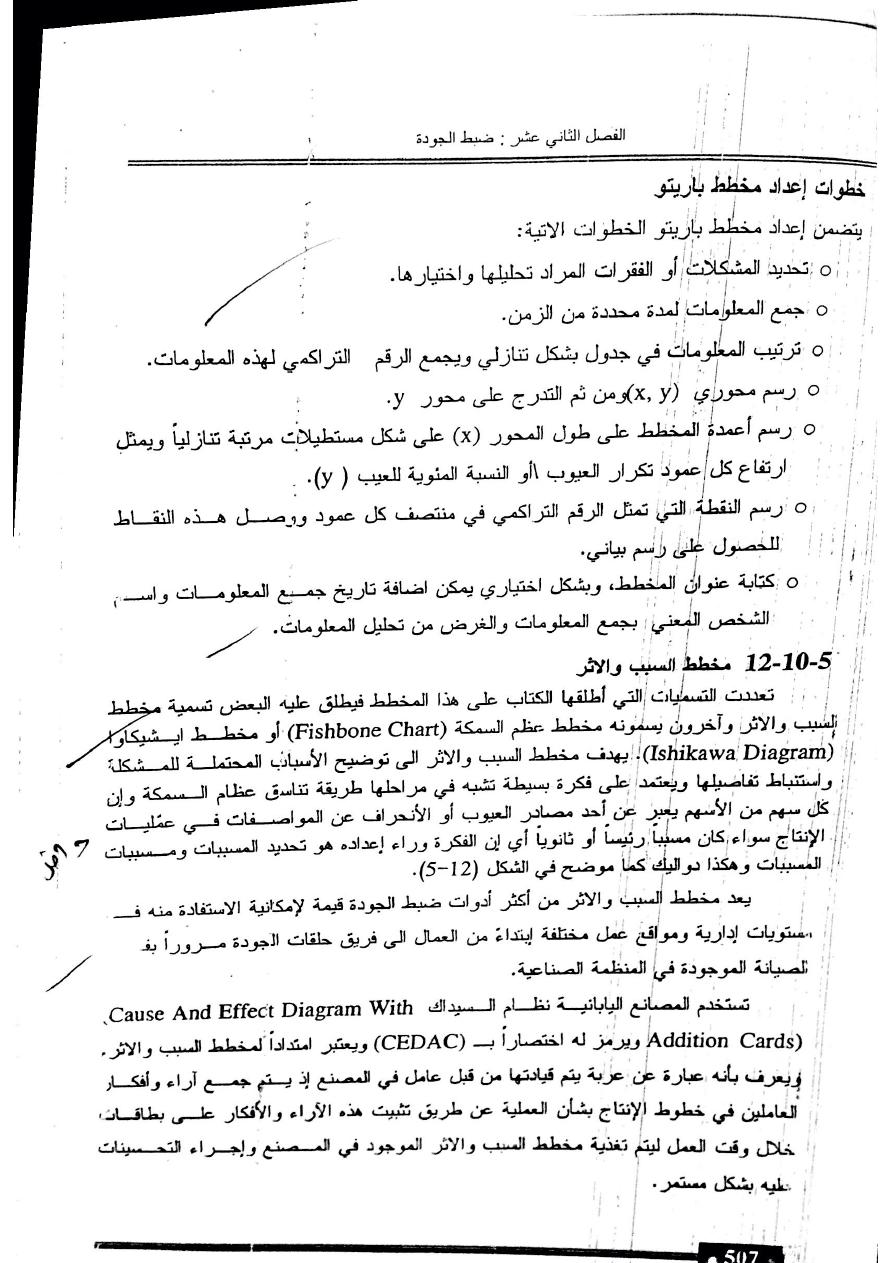 الفصل الثاني عشر : ضبط الجودة
خطوات إعداد مخطط باريتو
يتضمن إعداد مخطط باريتو الخطوات الاتية:
○ تحديد المشكلات أو الفقرات المراد تحليلها واختيارها.
○ جمع المعلومات لمدة محددة من الزمن.
○ ترتيب المعلومات في جدول بشكل تنازلي ويجمع الرقم التراكمي لهذه المعلومات.
○ رسم محوري (x, y)ومن ثم التدرج على محور y.
○ رسم أعمدة المخطط على طول المحور (x) على شكل مستطيلات مرتبة تنازلياً ويمثل
ارتفاع كل عمود تكرار العيوب \أو النسبة المئوية للعيب ( y).
○ رسم النقطة التي تمثل الرقم التراكمي في منتصف كل عمود ووصل هذه النقاط
للحصول على رسم بياني.
○ كتابة عنوان المخطط، وبشكل اختياري يمكن اضافة تاريخ جميع المعلومات واسم
الشخص المعني بجمع المعلومات والغرض من تحليل المعلومات.
12-10-5 مخطط السبب والاثر
تعددت التسميات التي أطلقها الكتاب على هذا المخطط فيطلق عليه البعض تسمية مخطط
السبب والاثر وآخرون يسمونه مخطط عظم السمكة (Fishbone Chart) أو مخطط ايشيكاوا
(Ishikawa Diagram). يهدف مخطط السبب والاثر الى توضيح الأسباب المحتملة للمشكلة
واستنباط تفاصيلها ويعتمد على فكرة بسيطة تشبه في مراحلها طريقة تناسق عظام السمكة وإن
كل سهم من الأسهم يعبر عن أحد مصادر العيوب أو الأنحراف عن المواصفات في عمليات
الإنتاج سواء كان مسبباً رئيساً أو ثانوياً أي إن الفكرة وراء إعداده هو تحديد المسببات ومسببات
المسببات وهكذا دواليك كما موضح في الشكل (12-5).
يعد مخطط السبب والاثر من أكثر أدوات ضبط الجودة قيمة لإمكانية الاستفادة منه فـ
مستويات إدارية ومواقع عمل مختلفة إبتداءً من العمال الى فريق حلقات الجودة مروراً بف
الصيانة الموجودة في المنظمة الصناعية.
تستخدم المصانع اليابانية نظام السيداك Cause And Effect Diagram With
Addition Cards) ويرمز له اختصاراً بـ (CEDAC) ويعتبر امتداداً لمخطط السبب والاثر.
ويعرف بأنه عبارة عن عربة يتم قيادتها من قبل عامل في المصنع إذ يتم جمع آراء وأفكار
العاملين في خطوط الإنتاج بشأن العملية عن طريق تثبيت هذه الآراء والأفكار على بطاقات
خلال وقت العمل ليتم تغذية مخطط السبب والاثر الموجود في المصنع وإجراء التحسينات
عليه بشكل مستمر.
507